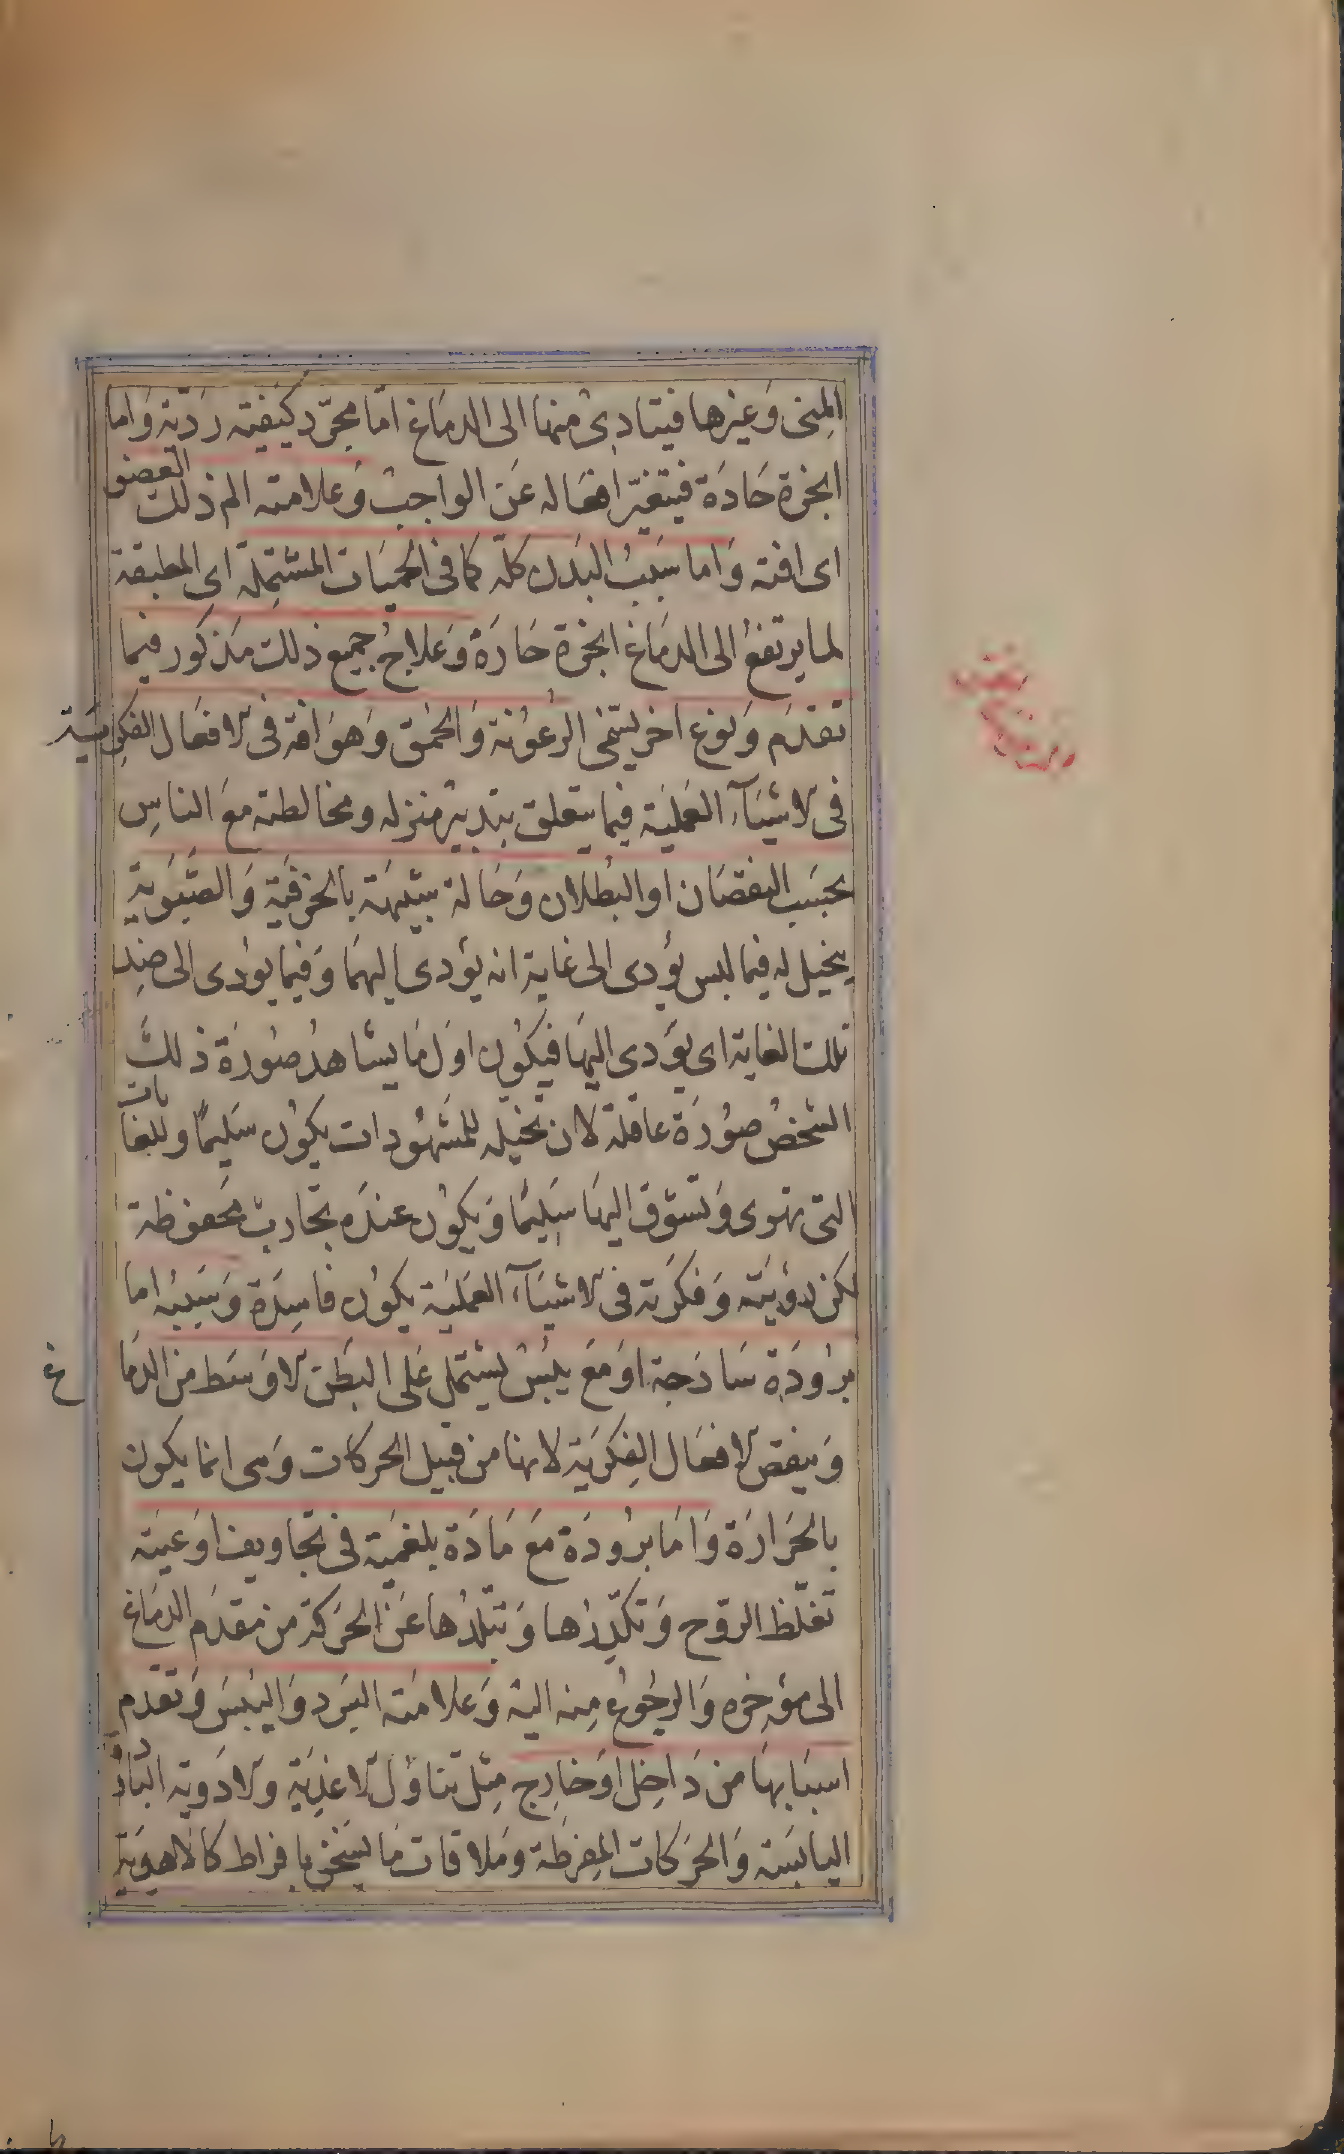 المنى وغيرها فيتادى منها الى الدماغ اما مجرد كيفية ردية واما
ابخرة حادة فيتغير افعاله عن الواجب وعلامته الم ذلك العضو
اى افته واما سبب البدن كله كما فى الحميات المشتملة اى المطبقة
لما يرتفع الى الدماغ ابخرة حارة وعلاج جميع ذلك مذكور فيما
تقدم ونوع اخر يسمى الرعونة والحمق وهو افة فى الافعال الفكرية
فى الاشياء العملية فيما يتعلق بتدبير منزله ومخالطته مع الناس
بحسب النقصان او البطلان وحالة شبيهة بالخرفية والصبوية
يخيل له فيما ليس يؤدى الى غاية انه يؤدى اليهما وفيما يؤدى الى ضد
تلك الغاية اى يؤدى اليها فيكون اول ما يشاهد صورة ذلك
الشخص صورة عاقلة لان تخيله للمشهودات يكون سليما وللغايات
التى تهوى وتشوق اليها سليما ويكون عنده تجارب محفوظة
لكن رؤيته وفكرته فى الاشياء العملية يكون فاسدة وسببه اما
برودة ساذجة او مع يبس يشتمل على البطن الاوسط من الدماغ
وينقص الافعال الفكرية لانها من قبيل الحركات وهى انما يكون
بالحرارة واما برودة مع مادة بلغمية فى تجاويف اوعيته
تغلظ الروح وتكدرها وتبلدها عن الحركة من مقدم الدماغ
الى مؤخره والرجوع منه اليه وعلامته البرد واليبس وتقدم
اسبابها من داخل او خارج مثل تناول الاغذية والادوية الباردة
اليابسة والحركات المفرطة وملاقات ما يسخن بافراط كالاهوية